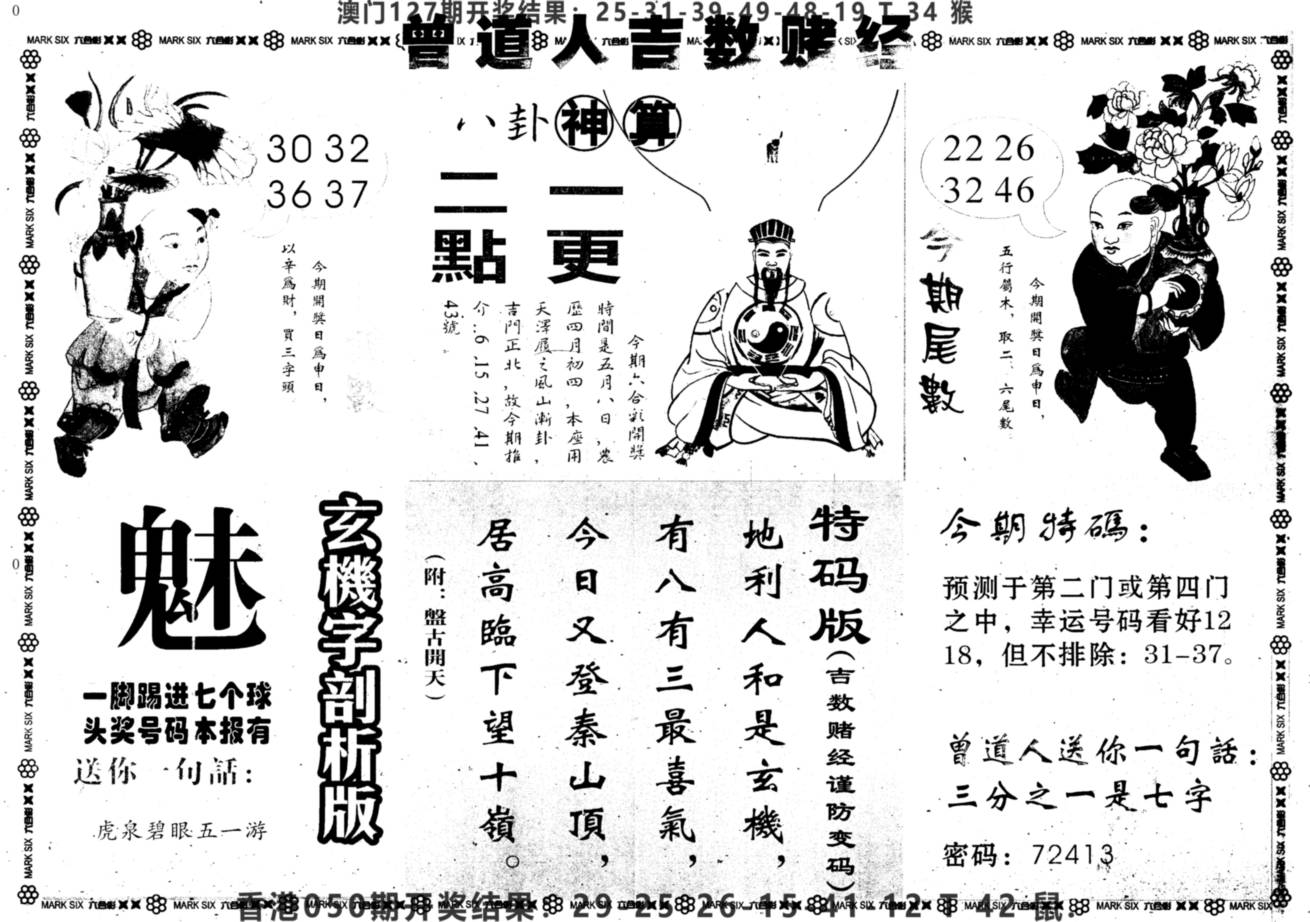 澳门127期开奖结果：25-31-39-49-48-19 T 34 猴
曾道人吉数赌经
30 32
36 37
今期開獎日爲申日，
以辛爲財，買三字頭
八卦神算
一更
二點
今期六合彩開獎
時間是五月八日，農
歷四月初四，本座用
天澤履之風山漸卦，
吉門正北，故今期推
介..6.15.27.41、
43號。
22 26
32 46
今期尾數
今期開獎日爲申日，
五行屬木，取二、六尾數
玄機字剖析版
魅
一脚踢进七个球
头奖号码本报有
送你一句話：
虎泉碧眼五一游
特码版（吉数赌经谨防变码）
地利人和是玄機，
有八有三最喜氣，
今日又登秦山頂，
居高臨下望十嶺。
（附：盤古開天）
今期特碼：
预测于第二门或第四门
之中，幸运号码看好12
18，但不排除：31-37。
曾道人送你一句話：
三分之一是七字
密码：72413
香港050期开奖结果：29-25-26-15-41-12 T 42 鼠